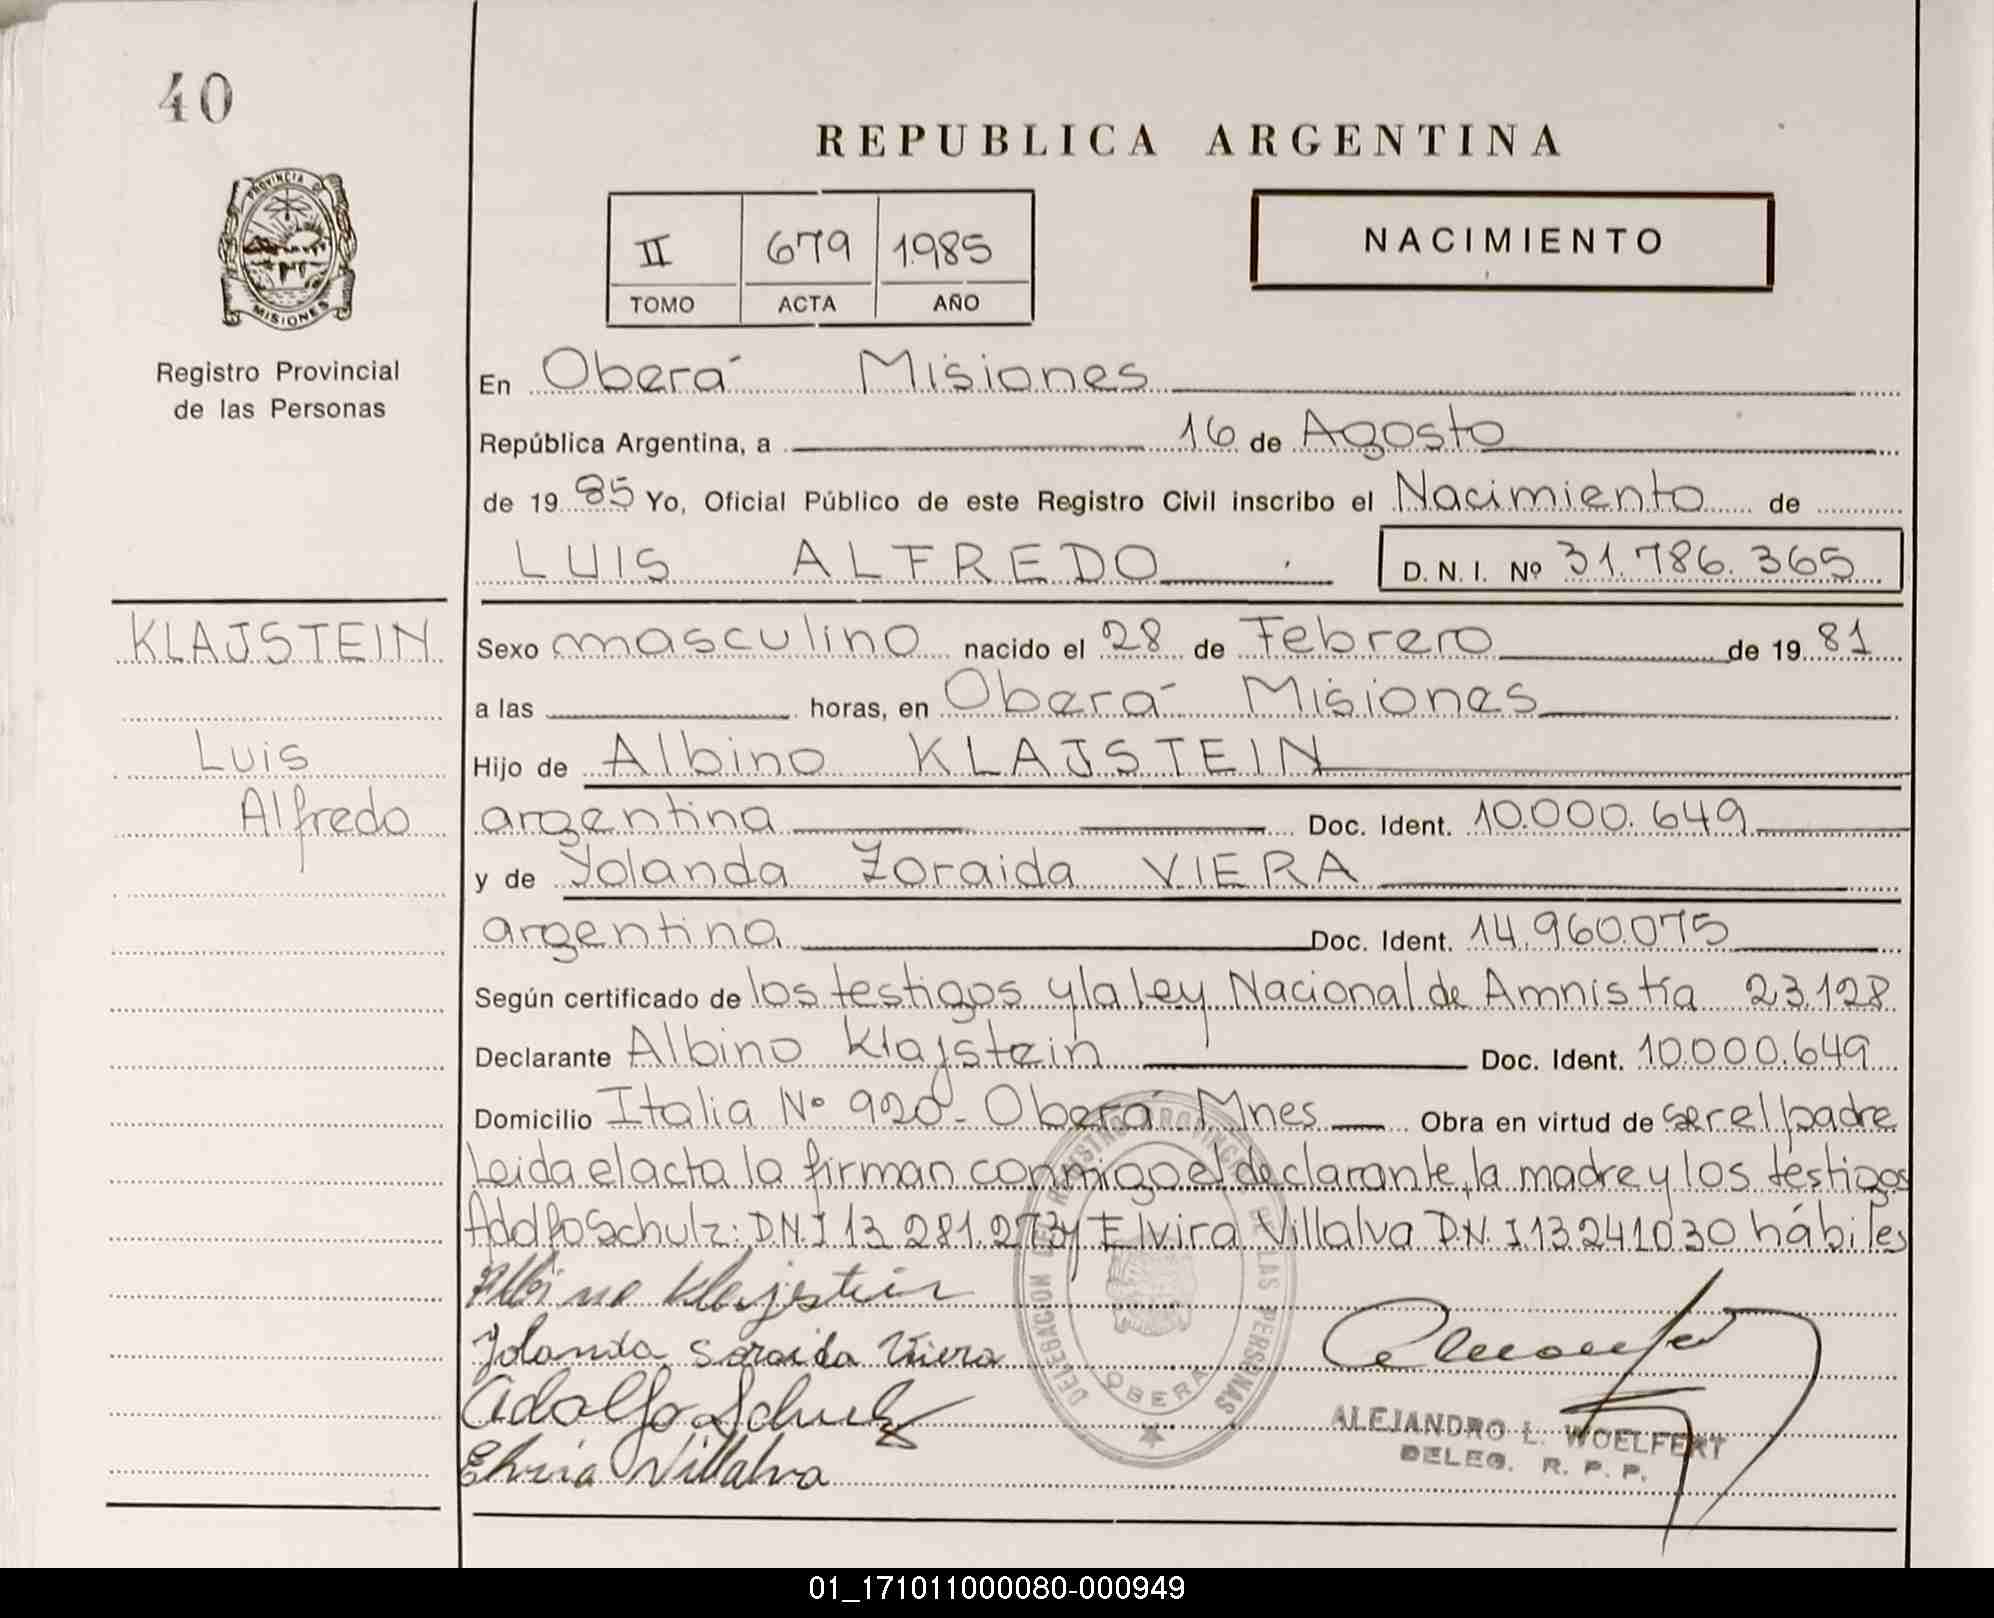 40
REPUBLICA ARGENTINA
PROVINCIA DE
MISIONES
Registro Provincial
de las Personas
II 679 1985
TOMO ACTA AÑO
NACIMIENTO
En Oberá Misiones
República Argentina, a 16 de Agosto
de 19 85 Yo, Oficial Público de este Registro Civil inscribo el Nacimiento de
LUIS ALFREDO D. N. I. Nº 31.786.365
KLAJSTEIN
Luis
Alfredo
Sexo masculino nacido el 28 de Febrero de 19 81
a las horas, en Oberá Misiones
Hijo de Albino KLAJSTEIN
argentina Doc. Ident. 10.000.649
y de Yolanda Zoraida VIERA
argentina Doc. Ident. 14.960.075
Según certificado de los testigos y la ley Nacional de Amnistía 23.128
Declarante Albino Klajstein Doc. Ident. 10.000.649
Domicilio Italia Nº 920 - Oberá Mnes Obra en virtud de ser el padre
Leida el acta la firman conmigo el declarante, la madre y los testigos
Adolfo Schulz: D.N.I 13.281.273 y Elvira Villalva D.N.I 13241030 hábiles
Albino Klajstein
Yolanda Soraida Viera
Adolfo Schulz
Elvira Villalva
DELEGACION DEL REGISTRO PROVINCIAL DE LAS PERSONAS
OBERA
ALEJANDRO L. WOELFERT
DELEG. R. P. P.
01_171011000080-000949